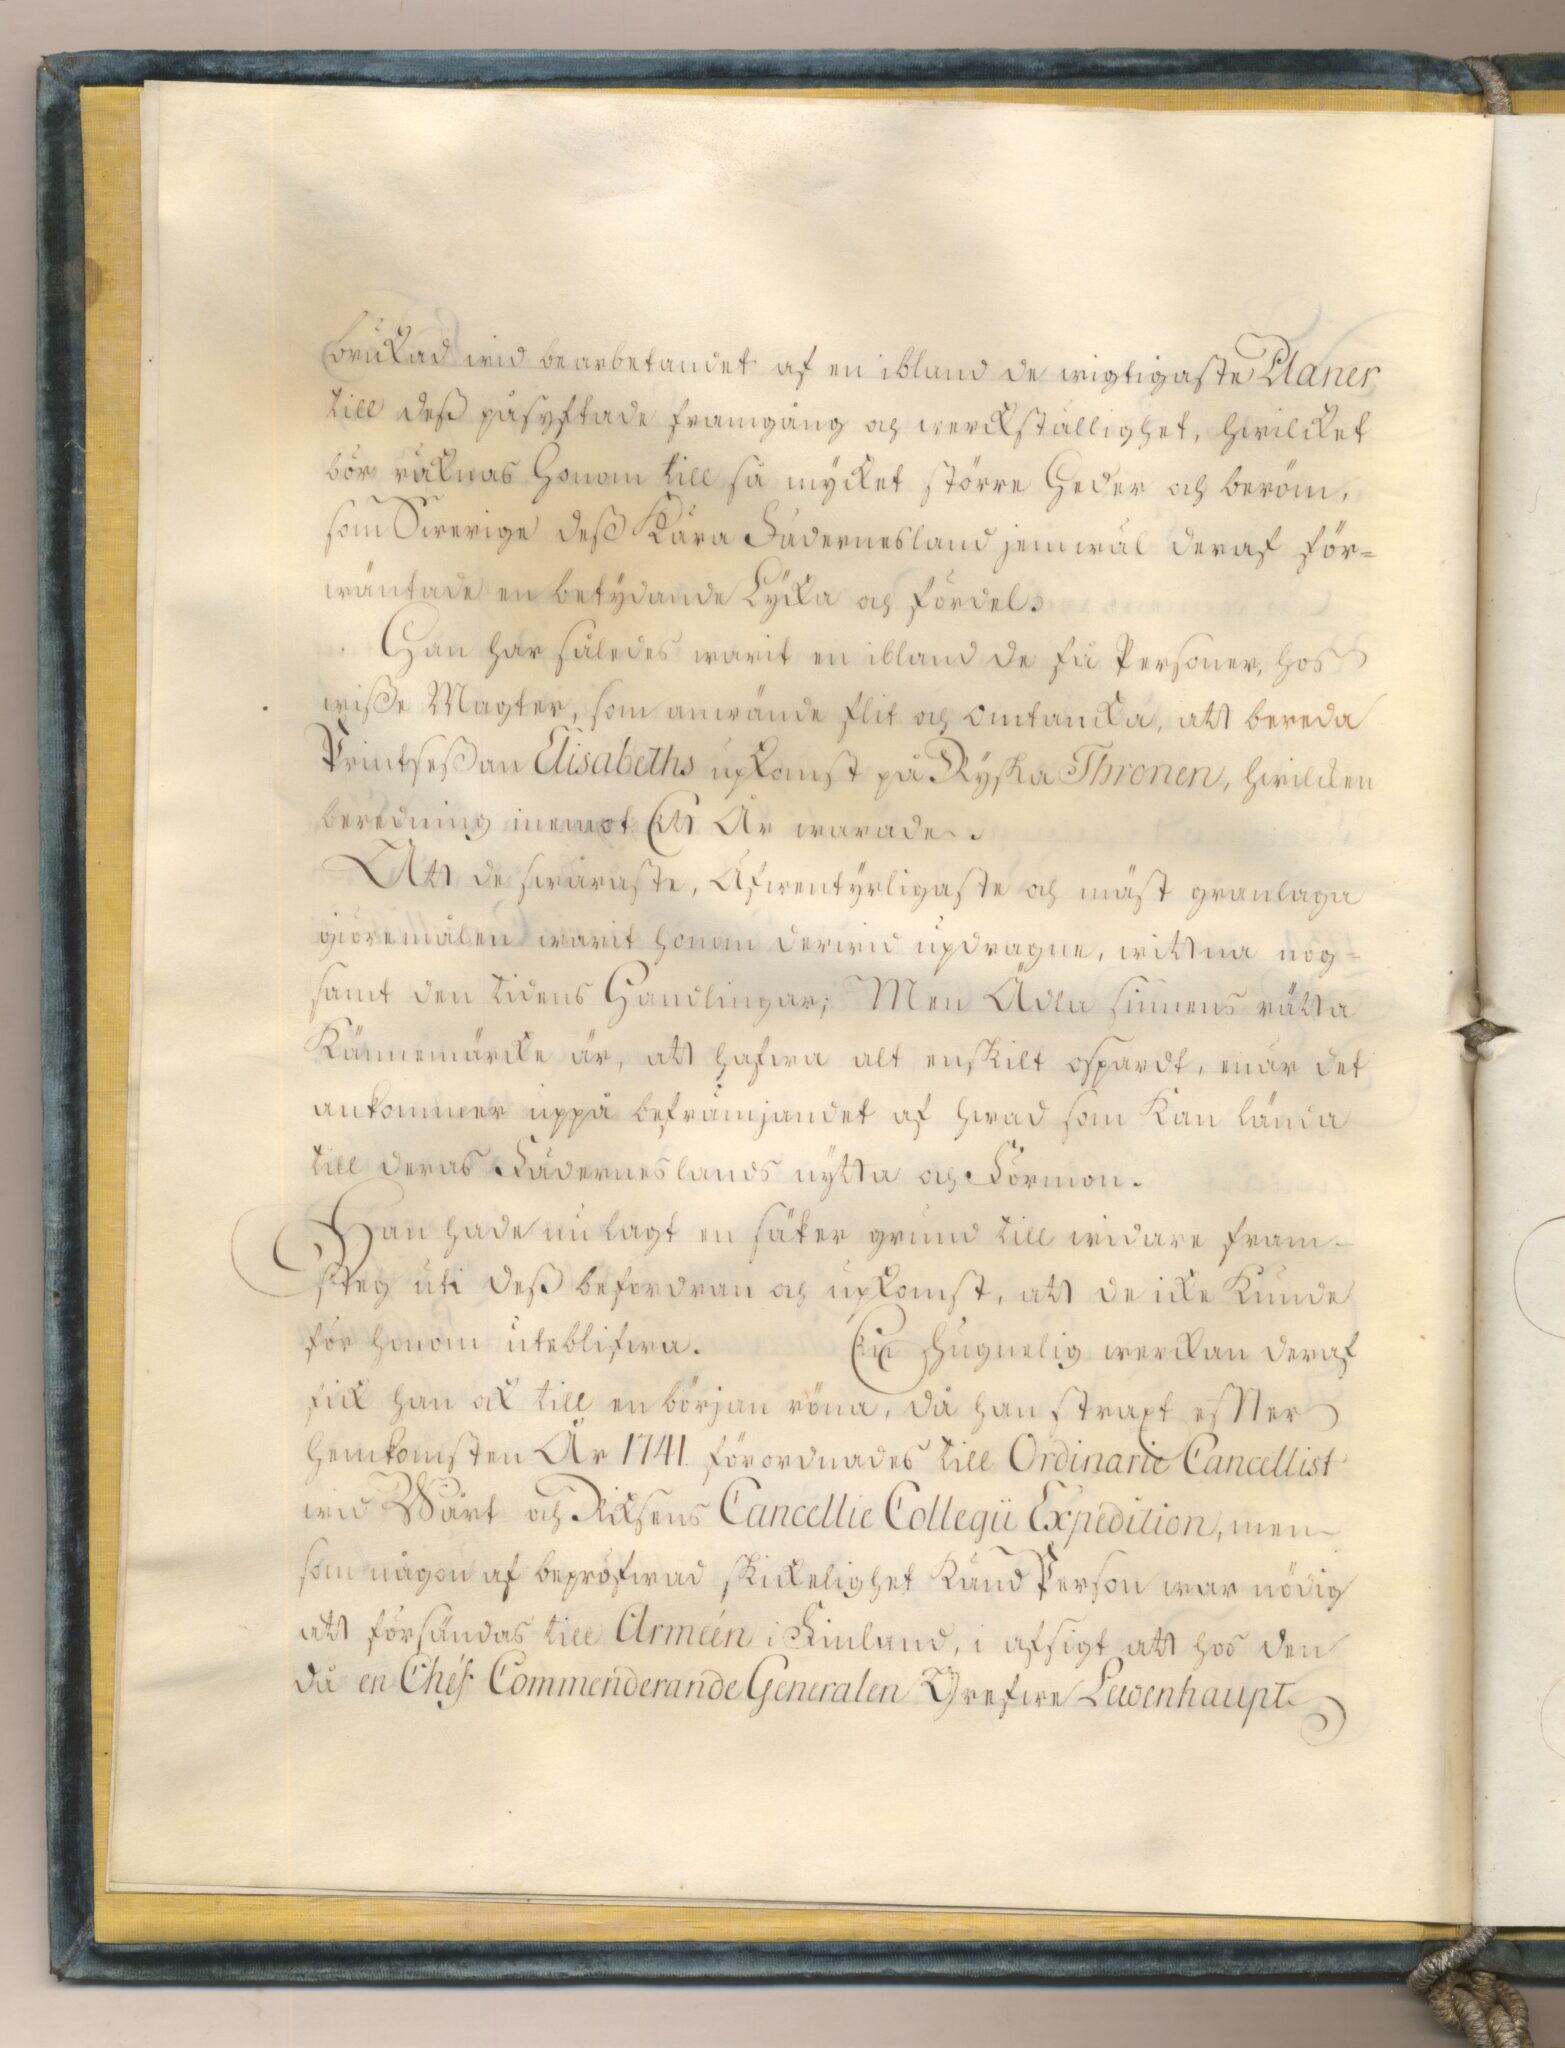 brukad wid bearbetandet af en ibland de wigtigaste Planer
till deß påsyftade framgång och werckställighet, hwilcket
bör räknas Honom till så mycket större Heder och beröm,
som Swerige deß Kära Fädernesland jemwäl deraf för=
wäntade en betydande Lycka och fördel.
Han har således warit en ibland de få Personer, hos
wiße Magter, som anwände flit och omtancka, att bereda
Printseßan Elisabeths upkomst på Ryska Thronen, hwilcken
beredning inemot Ett År warade.
Att de swåraste, Äfwentyrligaste och mäst granlaga
giöremålen warit honom derwid updragne, wittna nog=
samt den tidens Handlingar; Men Ädla sinnens rätta
Kännemärcke är, att hafwa alt enskilt ospardt, enär det
ankommer uppå befrämjandet af hwad som Kan lända
till deras Fäderneslands nytta och Förmon.
Han hade nu lagt en säker grund till widare fram-
steg uti deß befordran och upkomst, att de icke Kunde
för honom uteblifwa. En hugnelig werckan deraf
fick han ock till en början röna, då han straxt efter
hemkomsten År 1741. förordnades till Ordinarie Cancellist
wid Wårt och Riksens Cancellie Collegii Expedition, men
som någon af bepröfwad skickelighet Känd Person war nödig
att försändas till Arméen i Finland, i afsigt att hos den
då en Chéf Commenderande Generalen Grefwe Lewenhaupt